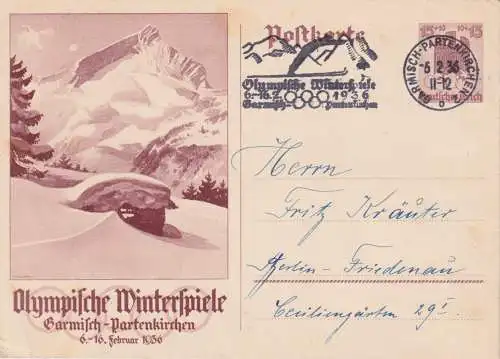 Postkarte
15+10
10+15
Deutsches Reich
GARMISCH-PARTENKIRCHEN
-6.2.36
11-12
Olympische Winterspiele
6.-16.2. 1936
Garmisch Partenkirchen
Herrn
Fritz Kräuter
Berlin-Friedenau
Cäciliengärten 29 I
Olympische Winterspiele
Garmisch-Partenkirchen
6.-16. Februar 1936